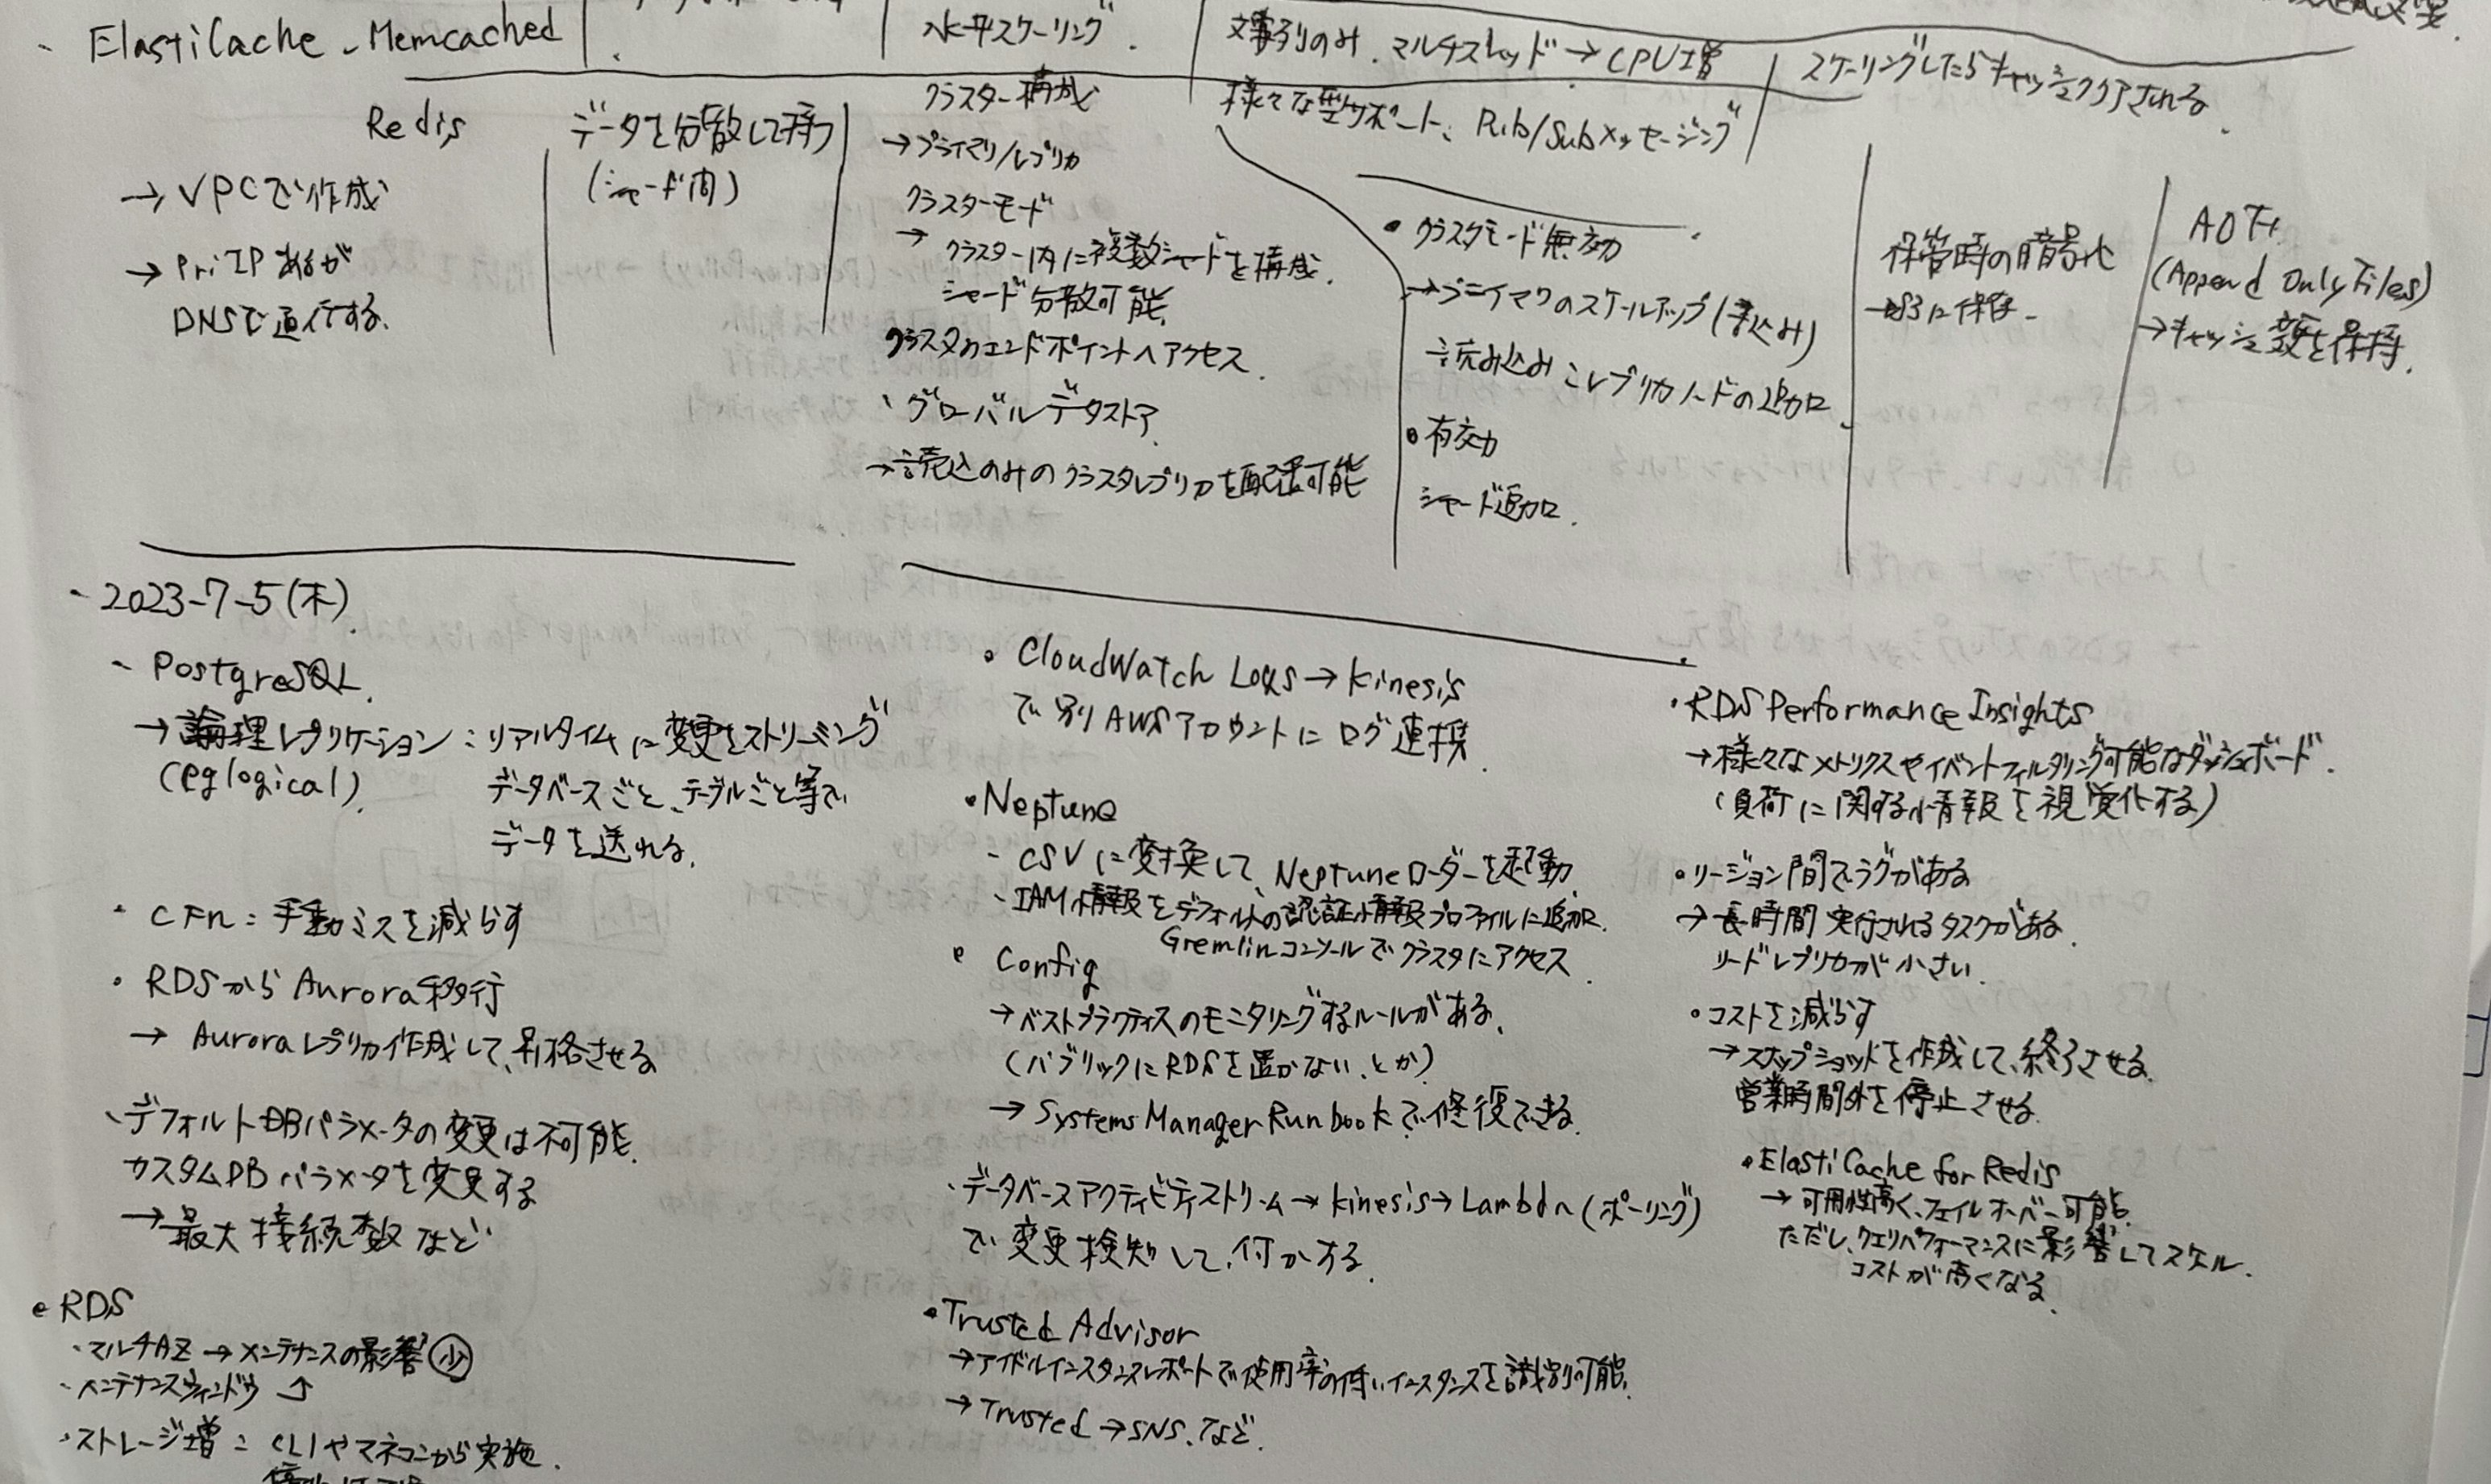 ・ElastiCache - Memcached
水平スケーリング.
文字列のみ.マルチスレッド→CPU増
スケーリングしたらキャッシュクリアされる.
Redis
データを分散して持つ
(シャード間)
→VPCで作成
→PriIPあるが
DNSで通信する.
クラスター構成
→プライマリ/レプリカ
クラスターモード
→クラスター内に複数シャードを構成.
シャード分散可能.
クラスタのエンドポイントへアクセス.
・グローバルデータストア
→読込のみのクラスタレプリカを配置可能
様々な型サポート、Pub/Subメッセージング
・クラスタモード無効
→プライマリのスケールアップ(書込み)
読み込み:レプリカノードの追加
・有効
シャード追加.
保管時の暗号化
→S3に保存-
AOF
(Append Only Files)
→キャッシュ変更を保持.
・2023-7-5(木)
- PostgreSQL.
→論理レプリケーション:リアルタイムに変更をストリーミング
(pglogical)
データベースごと、テーブルごと等で
データを送れる.
・CFn:手動ミスを減らす
・RDSからAurora移行
→Auroraレプリカ作成して、昇格させる
・デフォルトDBパラメータの変更は不可能.
カスタムDBパラメータを変更する
→最大接続数など
・RDS
・マルチAZ→メンテナンスの影響 少
・メンテナンスウィンドウ↑
・ストレージ増:CLIやマネコンから実施.
・CloudWatch Logs→Kinesis
で別AWSアカウントにログ連携.
・Neptune
- CSVに変換して、Neptuneローダーを起動.
- IAM情報をデフォルトの認証情報プロファイルに追加.
Gremlinコンソールでクラスタにアクセス.
・Config
→ベストプラクティスのモニタリングするルールがある.
(パブリックにRDSを置かない、とか)
→Systems Manager Runbookで修復できる.
・データベースアクティビティストリーム→Kinesis→Lambda(ポーリング)
で変更検知して、何かする.
・Trusted Advisor
→アイドルインスタンスレポートで使用率の低いインスタンスを識別可能.
→Trusted→SNS、など.
・RDS Performance Insights
→様々なメトリクスやイベントフィルタリング可能なダッシュボード.
(負荷に関する情報を視覚化する)
・リージョン間でラグがある
→長時間実行されるタスクがある.
リードレプリカが小さい.
・コストを減らす
→スナップショットを作成して、終了させる.
営業時間外を停止させる.
・ElastiCache for Redis
→可用性高く、フェイルオーバー可能.
ただし、クエリパフォーマンスに影響してスケール.
コストが高くなる.